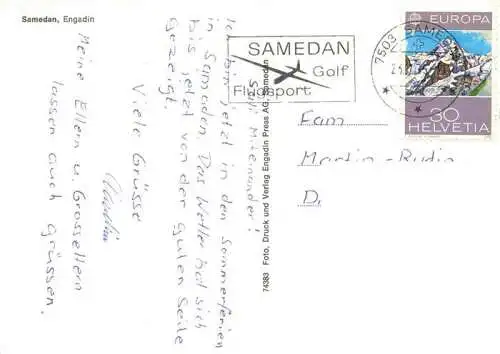 Samedan, Engadin
Sali Miteinander!
Ich bin jetzt in den Sommerferien
in Samaden. Das Wetter hat sich
bis jetzt von der guten Seite
gezeigt.
Viele Grüsse
Meine Eltern u. Grosseltern
lassen auch grüssen.
74383 Foto, Druck und Verlag Engadin Press AG, Samedan
SAMEDAN
Golf
Flugsport
7503 SAMEDAN
EUROPA
30
HELVETIA
Fam
Martin-Rudin
D.